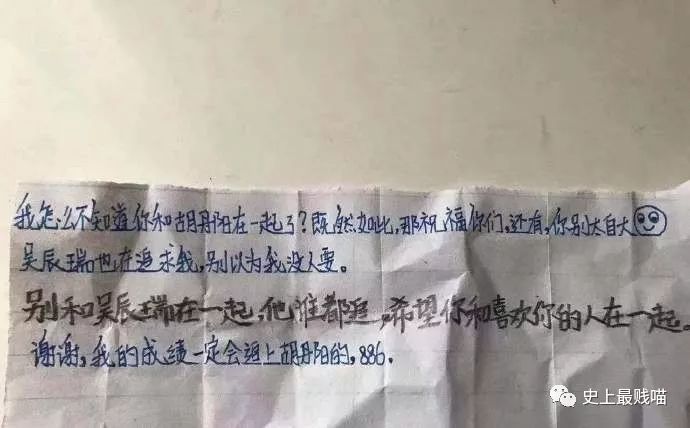 我怎么不知道你和胡丹阳在一起了?既然如此,那祝福你们,还有,你别太自大
吴辰瑞也在追求我,别以为我没人要。
别和吴辰瑞在一起,他谁都追,希望你和喜欢你的人在一起。
谢谢,我的成绩一定会追上胡丹阳的,886.
史上最贱喵